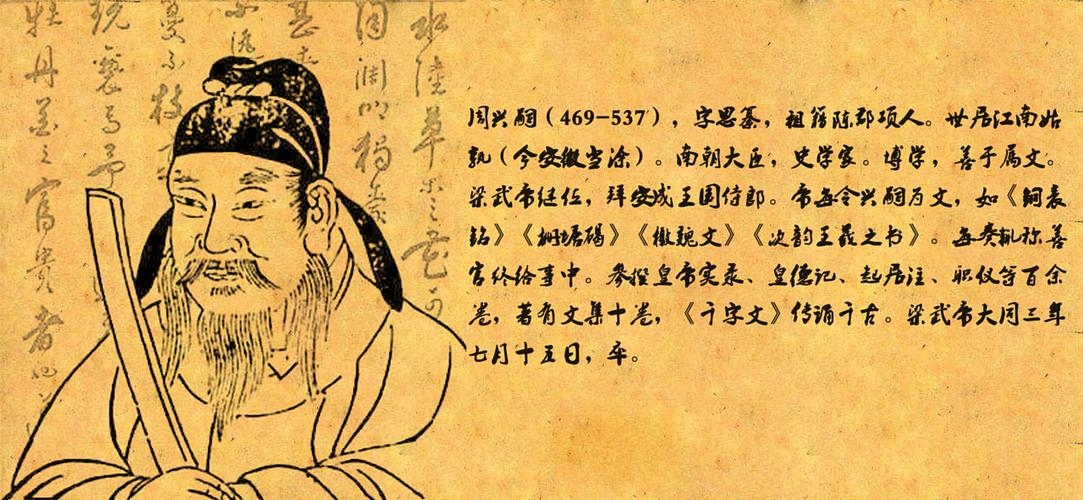 周兴嗣（469-537），字思纂，祖籍陈郡项人。世居江南姑
孰（今安徽当涂）。南朝大臣，史学家。博学，善于属文。
梁武帝继位，拜安成王国侍郎。帝每令兴嗣为文，如《铜表
铭》《栅塘碣》《檄魏文》《次韵王羲之书》。每奏辄称善
官终给事中。参撰皇帝实录、皇德记、起居注、职仪等百余
卷，著有文集十卷，《千字文》传诵千古。梁武帝大同三年
七月十五日，卒。
水陸草木之花可
渊明独爱
蔓不枝
牡丹花之富貴者也